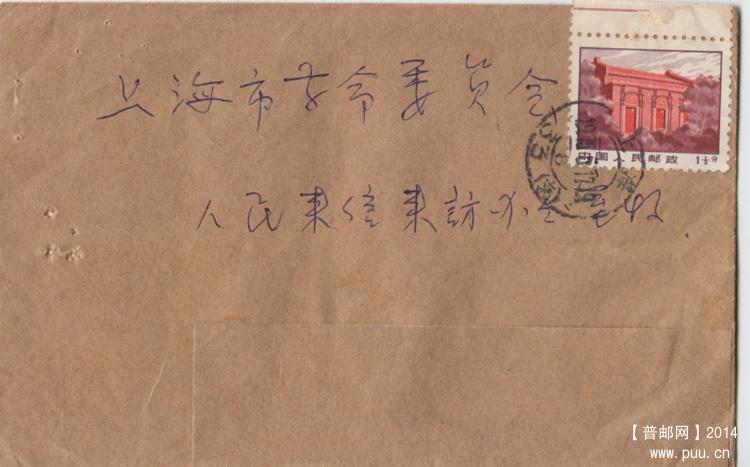 上海市革命委员会
中国人民邮政 1½分
人民来信来访办公室收.
【普邮网】2014
www.puu.cn